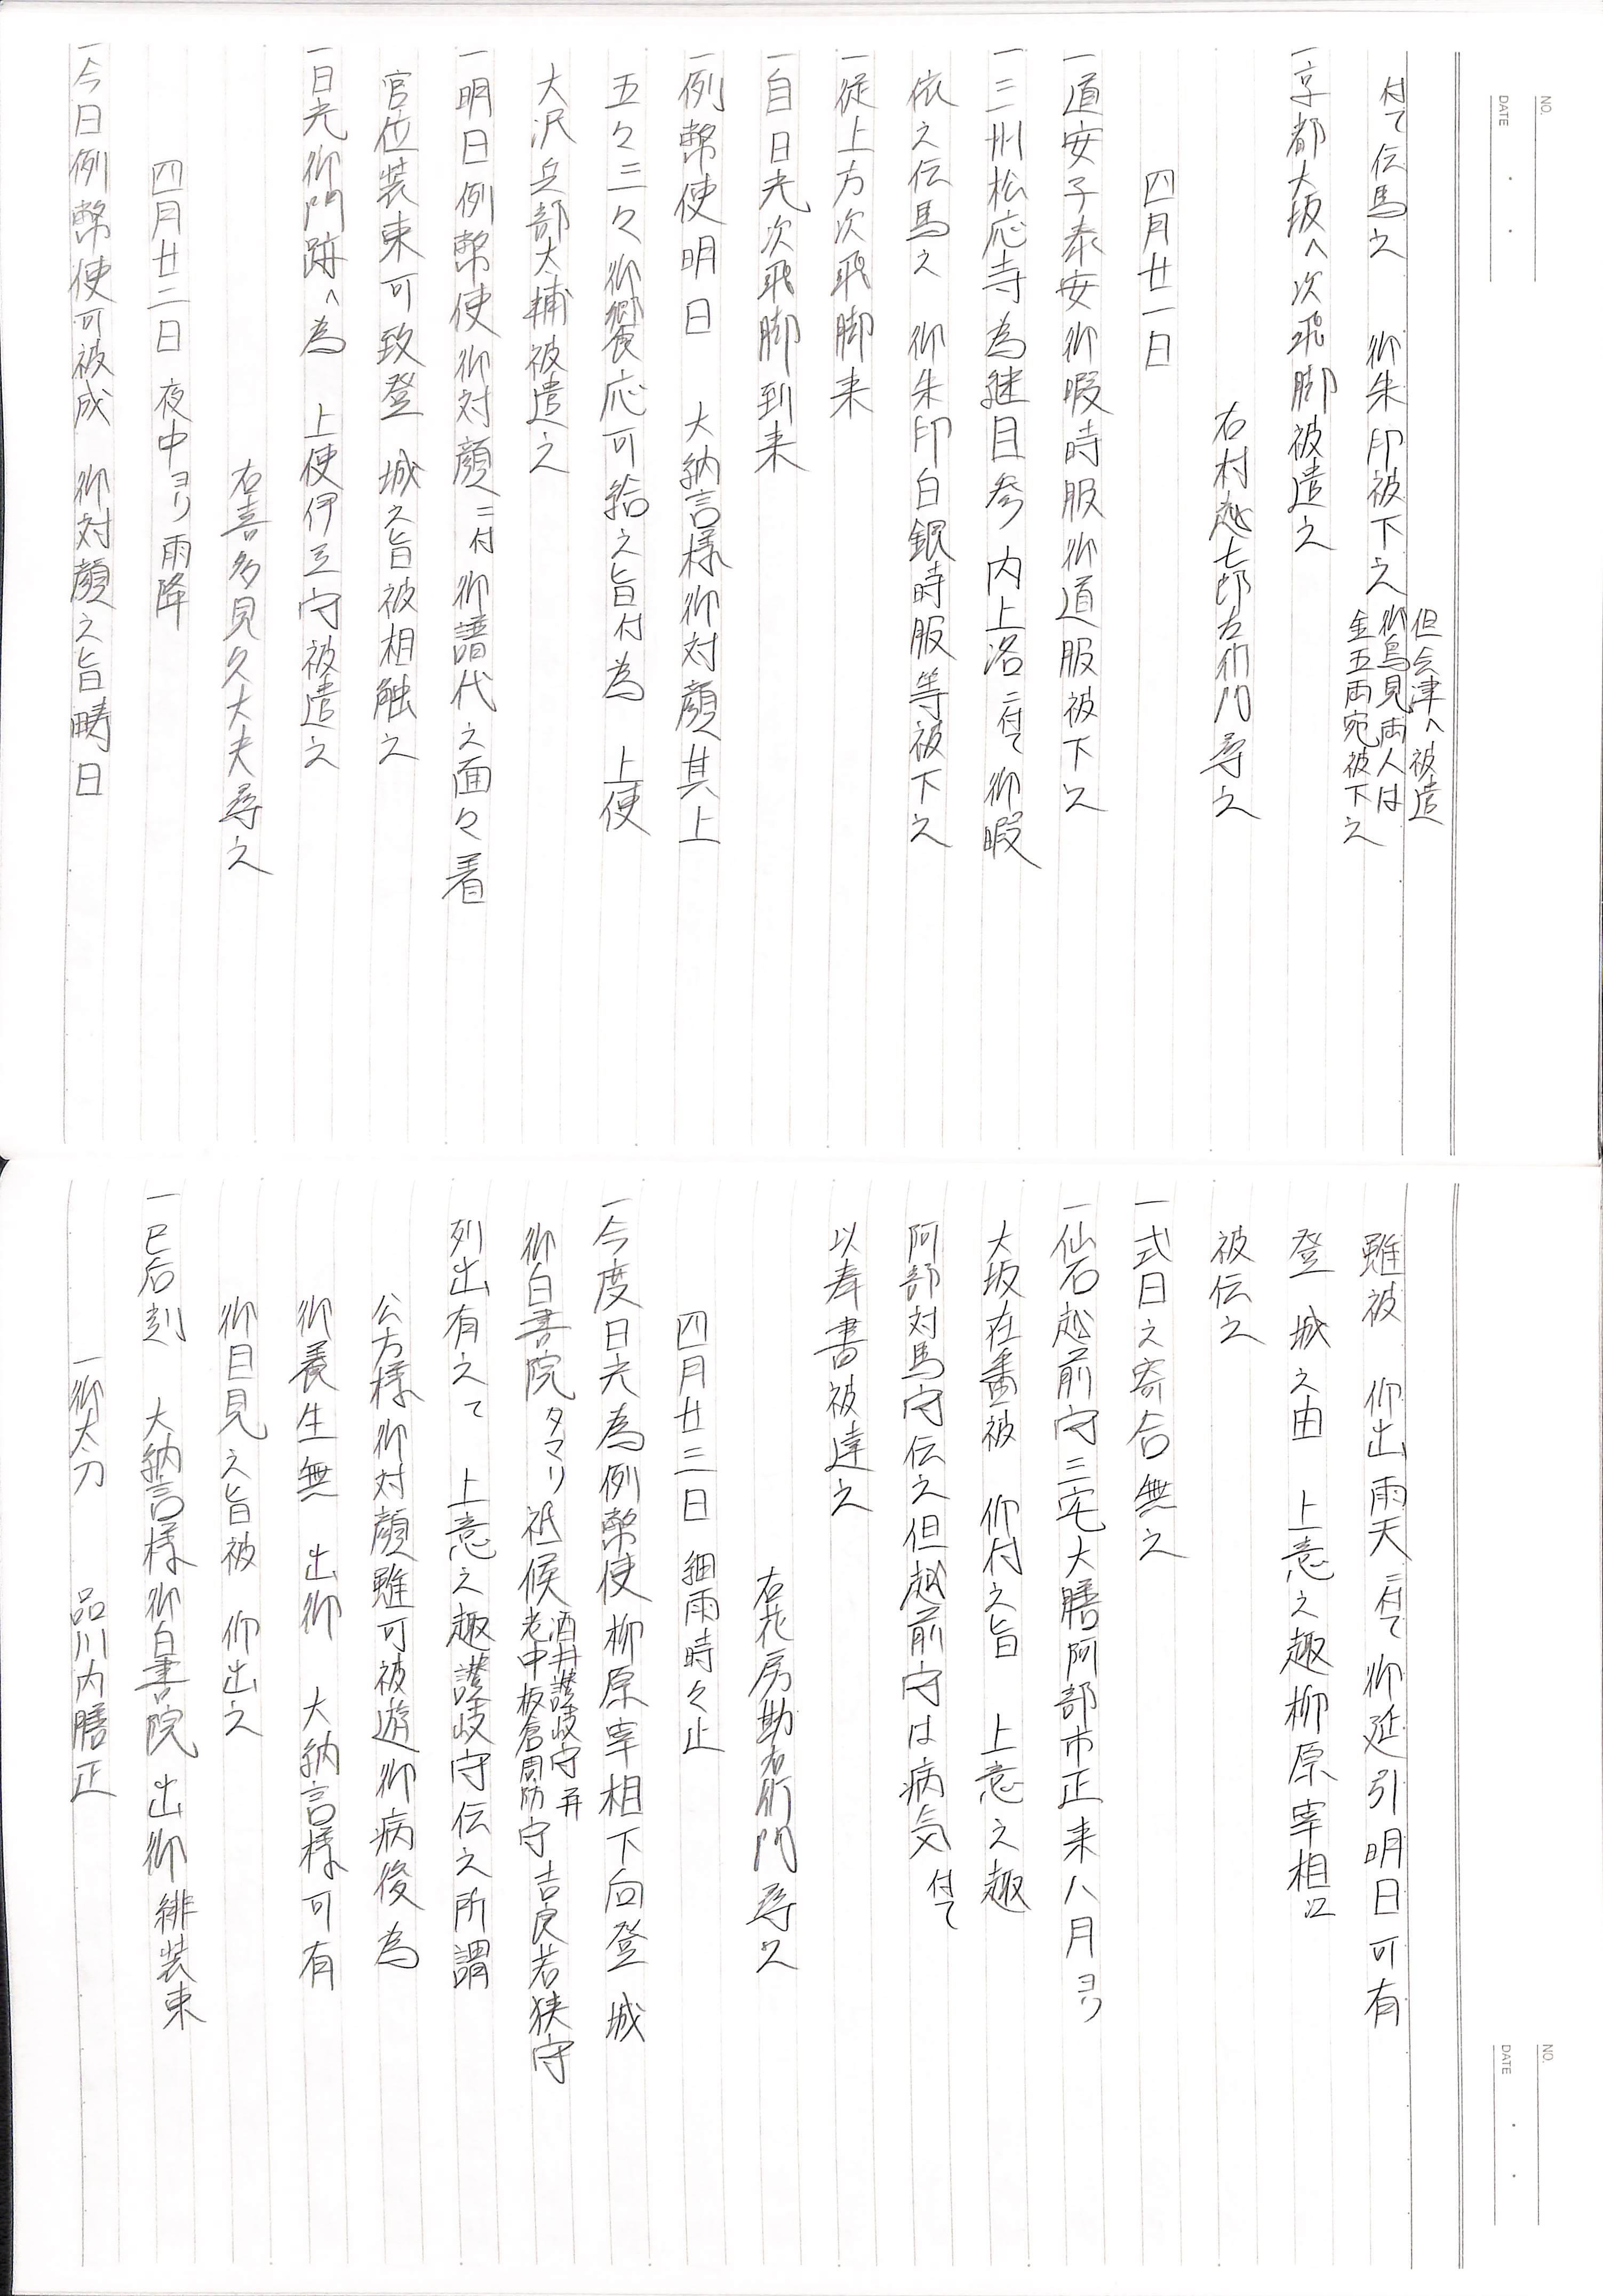 NO.
DATE
付て伝馬之 御朱印被下之 但会津へ被遣
御鳥見両人は
金五両宛被下之
一京都大坂へ次飛脚被遣之
右村越七郎左衛門尋之
四月廿一日
一道安子泰安御暇時服御道服被下之
一三州松応寺為継目参 内上洛ニ付て御暇
依之伝馬之 御朱印白銀時服等被下之
一従上方次飛脚来
一自日光次飛脚到来
一例幣使明日 大納言様御対顔其上
五々三々御饗応可給之旨付為 上使
大沢兵部大輔被遣之
一明日例幣使御対顔ニ付御譜代之面々着
官位装束可致登 城之旨被相触之
一日光御門跡へ為 上使伊豆守被遣之
右喜多見久大夫尋之
四月廿二日 夜中ヨリ雨降
一今日例幣使可被成 御対顔之旨疇日
NO.
DATE
雖被 仰出雨天ニ付て御延引明日可有
登 城之由 上意之趣柳原宰相江
被伝之
一式日之寄合無之
一仙石越前守三宅大膳阿部市正来八月ヨリ
大坂在番被 仰付之旨 上意之趣
阿部対馬守伝之但越前守は病気付て
以奉書被達之
右花房勘右衛門尋之
四月廿三日 細雨時々止
一今度日光為例幣使柳原宰相下向登 城
御白書院タマリ祗候 酒井讃岐守并
老中板倉周防守 吉良若狭守
列出有之て 上意之趣讃岐守伝之所謂
公方様御対顔雖可被遊御病後為
御養生無 出御 大納言様可有
御目見之旨被 仰出之
一巳后刻 大納言様御白書院 出御緋装束
一御太刀 品川内膳正